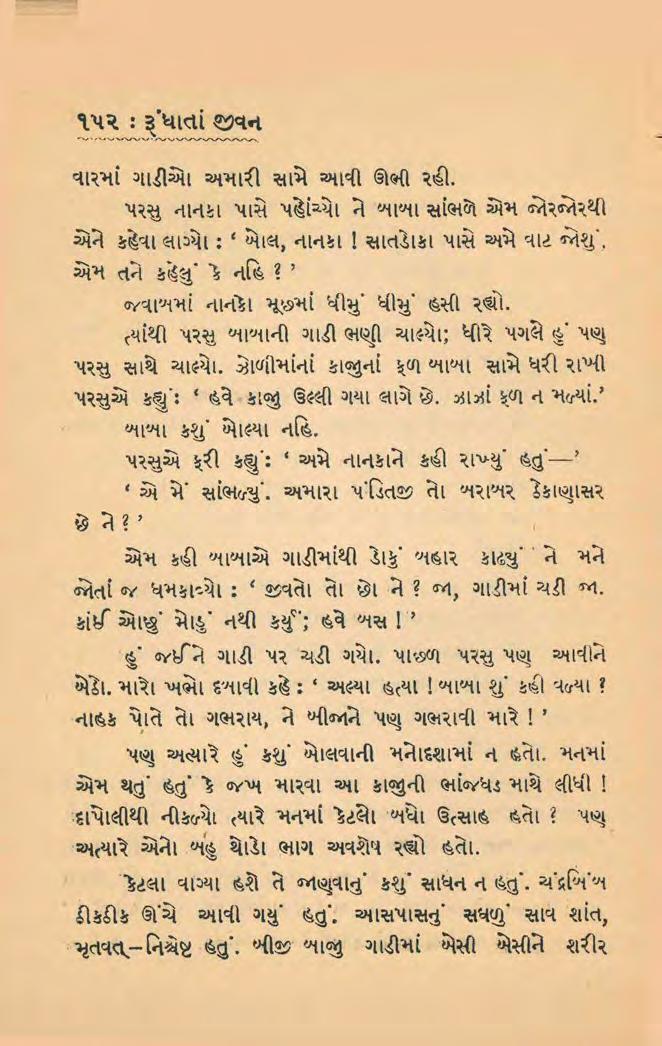 ૧૫૨ : રૂંધાતાં જીવન
વારમાં ગાડીઓ અમારી સામે આવી ઊભી રહી.
પરસુ નાનકા પાસે પહોંચ્યો ને બાબા સાંભળે એમ જોરજોરથી
એને કહેવા લાગ્યો : ‘ બોલ, નાનકા ! સાતડોકા પાસે અમે વાટ જોશું.
એમ તને કહેલું કે નહિ ? ’
જવાબમાં નાનકો મૂછમાં ધીમું ધીમું હસી રહ્યો.
ત્યાંથી પરસુ બાબાની ગાડી ભણી ચાલ્યો; ધીરે પગલે હું પણ
પરસુ સાથે ચાલ્યો. ઝોળીમાંનાં કાજુનાં ફળ બાબા સામે ધરી રાખી
પરસુએ કહ્યું : ‘ હવે કાજુ ઉલ્લી ગયા લાગે છે. ઝાઝાં ફળ ન મળ્યાં.’
બાબા કશું બોલ્યા નહિ.
પરસુએ ફરી કહ્યું : ‘ અમે નાનકાને કહી રાખ્યું હતું—’
‘ એ મેં સાંભળ્યું. અમારા પંડિતજી તો બરાબર ઠેકાણાસર
છે ને ? ’
એમ કહી બાબાએ ગાડીમાંથી ડોકું બહાર કાઢ્યું ને મને
જોતાં જ ધમકાવ્યો : ‘ જીવતો તો છો ને ? જા, ગાડીમાં ચડી જા.
કાંઈ ઓછું મોડું નથી કર્યું; હવે બસ ! ’
હું જઈને ગાડી પર ચડી ગયો. પાછળ પરસુ પણ આવીને
બેઠો. મારો ખભો દબાવી કહે : ‘ અલ્યા હત્યા ! બાબા શું કહી વળ્યા ?
નાહક પોતે તો ગભરાય, ને બીજાને પણ ગભરાવી મારે ! ’
પણ અત્યારે હું કશું બોલવાની મનોદશામાં ન હતો. મનમાં
એમ થતું હતું કે જખ મારવા આ કાજુની ભાંજઘડ માથે લીધી !
દાપોલીથી નીકળ્યો ત્યારે મનમાં કેટલો બધો ઉત્સાહ હતો ? પણ
અત્યારે એનો બહુ થોડો ભાગ અવશેષ રહ્યો હતો.
કેટલા વાગ્યા હશે તે જાણવાનું કશું સાધન ન હતું. ચંદ્રબિંબ
ઠીકઠીક ઊંચે આવી ગયું હતું. આસપાસનું સઘળું સાવ શાંત,
મૃતવત્–નિશ્ચેષ્ટ હતું. બીજી બાજુ ગાડીમાં બેસી બેસીને શરીર